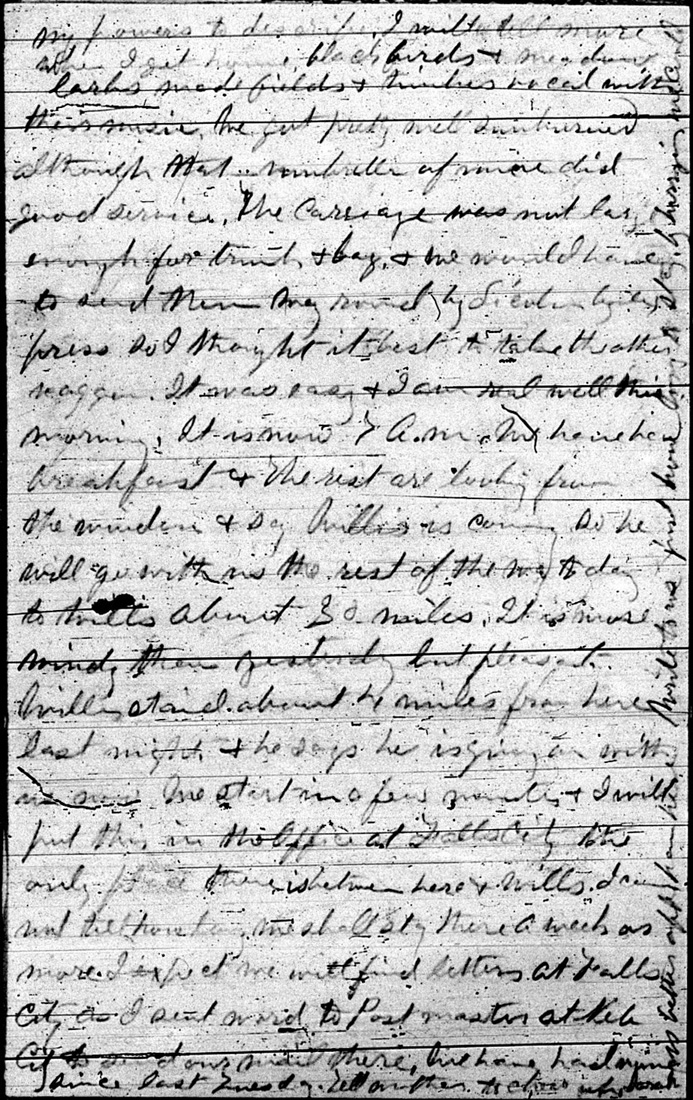 my powers to describe. I will tell more
when I get home. blackbirds & meadow
larks made fields & timbers vocal with
their music. We got pretty well sunburned
although that umbreller of mine did
good service. The Carriage was not large
enough for trunk & bag, & we would have
to send them way round by Lincoln by ex
press so I thought it best to take the other
waggon. It was easy & I am real well this
morning. It is now 7 A.m. We have had
breakfast & the rest are looking from
the window & say Willis is coming so he
will go with us the rest of the way to day
to Mills about 30 miles. It is more
windy than yesterday but pleasant.
Willis staid about 4 miles from here
last night & he says he is going on with
us now. We start in a few minutes & I will
put this in the Office at Falls City the
only place there is between here & Mills. I can
not tell how long we shall stay there a week or
more. I expect we will find letters at Falls
City as I sent word to Post master at Neb
City to send our mail there. We have had
since last Tuesday. Tell mother to